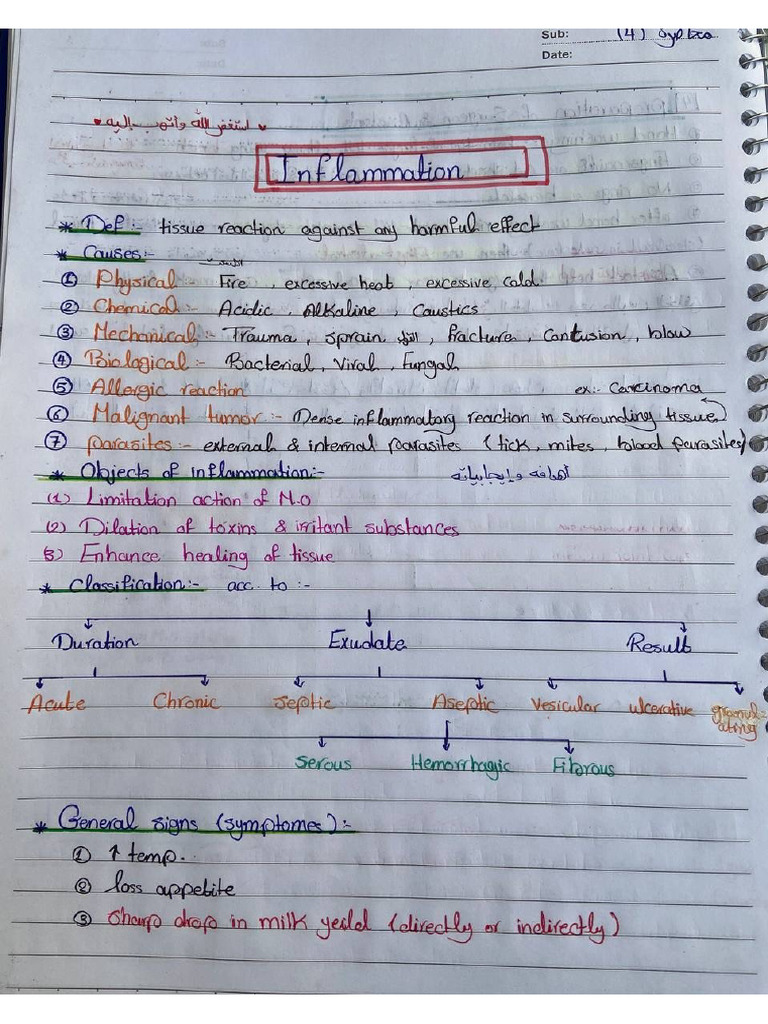 Sub: (4)
Date:
استغفر الله وأتوب إليه
Inflammation
* Def:- tissue reaction against any harmful effect
* Causes:-
① Physical:- Fire, excessive heat, excessive cold.
② Chemical:- Acidic, Alkaline, Caustics
③ Mechanical:- Trauma, sprain, fracture, Contusion, blow
④ Biological:- Bacterial, Viral, Fungal
⑤ Allergic reaction ex:- Carcinoma
⑥ Malignant tumor:- Dense inflammatory reaction in surrounding tissue
⑦ parasites:- external & internal parasites (tick, mites, blood parasites)
* Objects of inflammation:- أهدافه وإيجابياته
(1) Limitation action of M.O
(2) Dilation of toxins & irritant substances
(3) Enhance healing of tissue
* Classification:- acc. to:-
Duration Exudate Result
Acute Chronic Septic Aseptic Vesicular ulcerative granul=
ating
Serous Hemorrhagic Fibrous
* General signs (symptomes):-
① ↑ temp.
② loss appetite
③ Sharp drop in milk yeild (directly or indirectly)